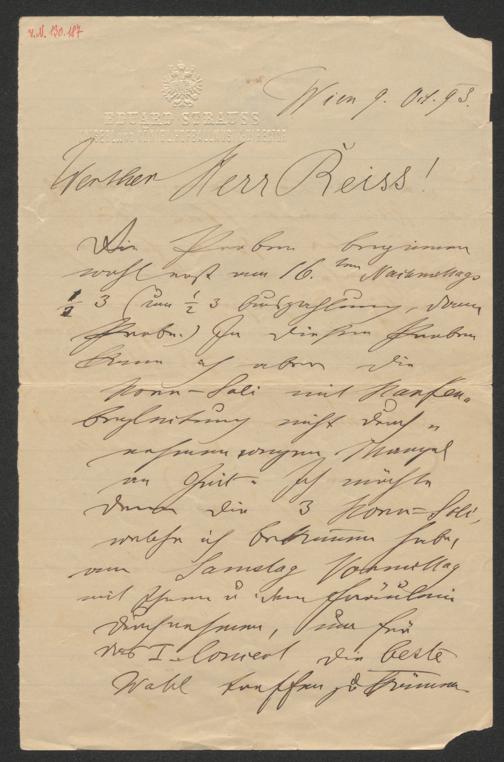 I.N. 130.187
EDUARD STRAUSS
Wien 9. Oct. 93.
Werther Herr Reiss!
Die Proben beginnen
wohl erst am 16. ten Nachmittags
1/2 3 (um 1/2 3 Auszahlung, dann
Probe.) In diesen Proben
kann ich aber die
Horn-Soli mit Harfen-
begleitung nicht durch-
nehmen wegen Mangel
an Zeit. Ich möchte
dann die 3 Horn-Soli,
welche ich bekommen habe,
am Samstag Vormittag
mit Ihnen u. dem Fräulein
durchnehmen, um für
das I. Concert die beste
Wahl treffen zu können